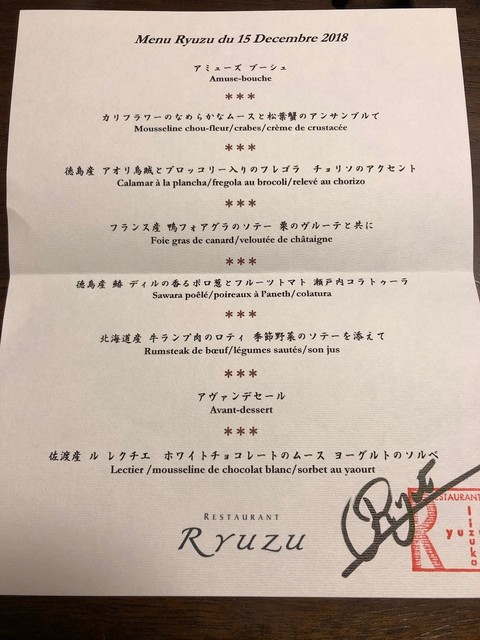 Menu Ryuzu du 15 Decembre 2018
アミューズ ブーシュ
Amuse-bouche
***
カリフラワーのなめらかなムースと松葉蟹のアンサンブルで
Mousseline chou-fleur/crabes/crème de crustacée
***
徳島産 アオリ烏賊とブロッコリー入りのフレゴラ チョリソのアクセント
Calamar à la plancha/fregola au brocoli/relevé au chorizo
***
フランス産 鴨フォアグラのソテー 栗のヴルーテと共に
Foie gras de canard/veloutée de châtaigne
***
徳島産 鰆 ディルの香るポロ葱とフルーツトマト 瀬戸内コラトゥーラ
Sawara poêlé/poireaux à l'aneth/colatura
***
北海道産 牛ランプ肉のロティ 季節野菜のソテーを添えて
Rumsteak de bœuf/légumes sautés/son jus
***
アヴァンデセール
Avant-dessert
***
佐渡産 ル レクチエ ホワイトチョコレートのムース ヨーグルトのソルベ
Lectier /mousseline de chocolat blanc/sorbet au yaourt
RESTAURANT
RYUZU
RESTAURANT
R
iizuka